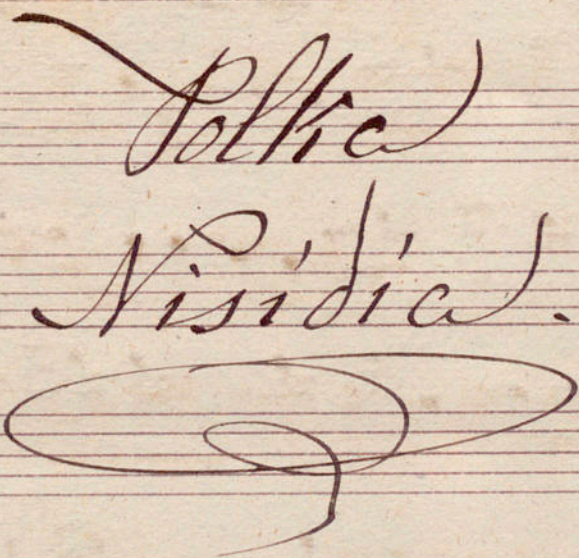 Polka
Nisidia.